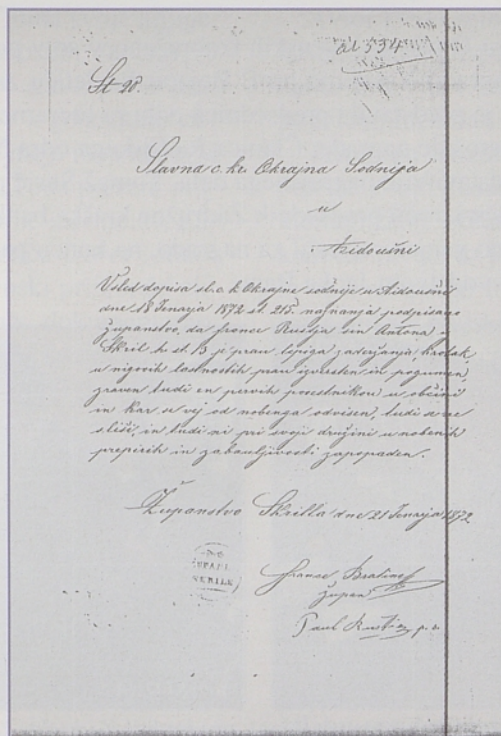 al 334
St 90.
Slavna c. kr. Okrajna Sodnija
u
Aidoušni
Vsled dopisa sl. c. k. Okrajne sodnije u Aidoušni
dne 18 Jenarja 1872 st. 215. naznanja podpisano
županstvo, da france Rustja sin Antona
Skril h. st. 13 je prau lepiga zaderžanja krotak,
u nigovih lastnostih prau izvresten in pogumen,
zraven tudi en pervih posestnikou u občini
in kar se vej od nobenga odvisen, tudi se ne
sliši, in tudi ni pri svoji družini u nobenih
prepirih in zabauljivosti zapopaden.
Županstvo Skrilla dne 21 Jenarja 1872
ŠPAN
SKRILE
Franse Bratina
župan
Paul Rustia